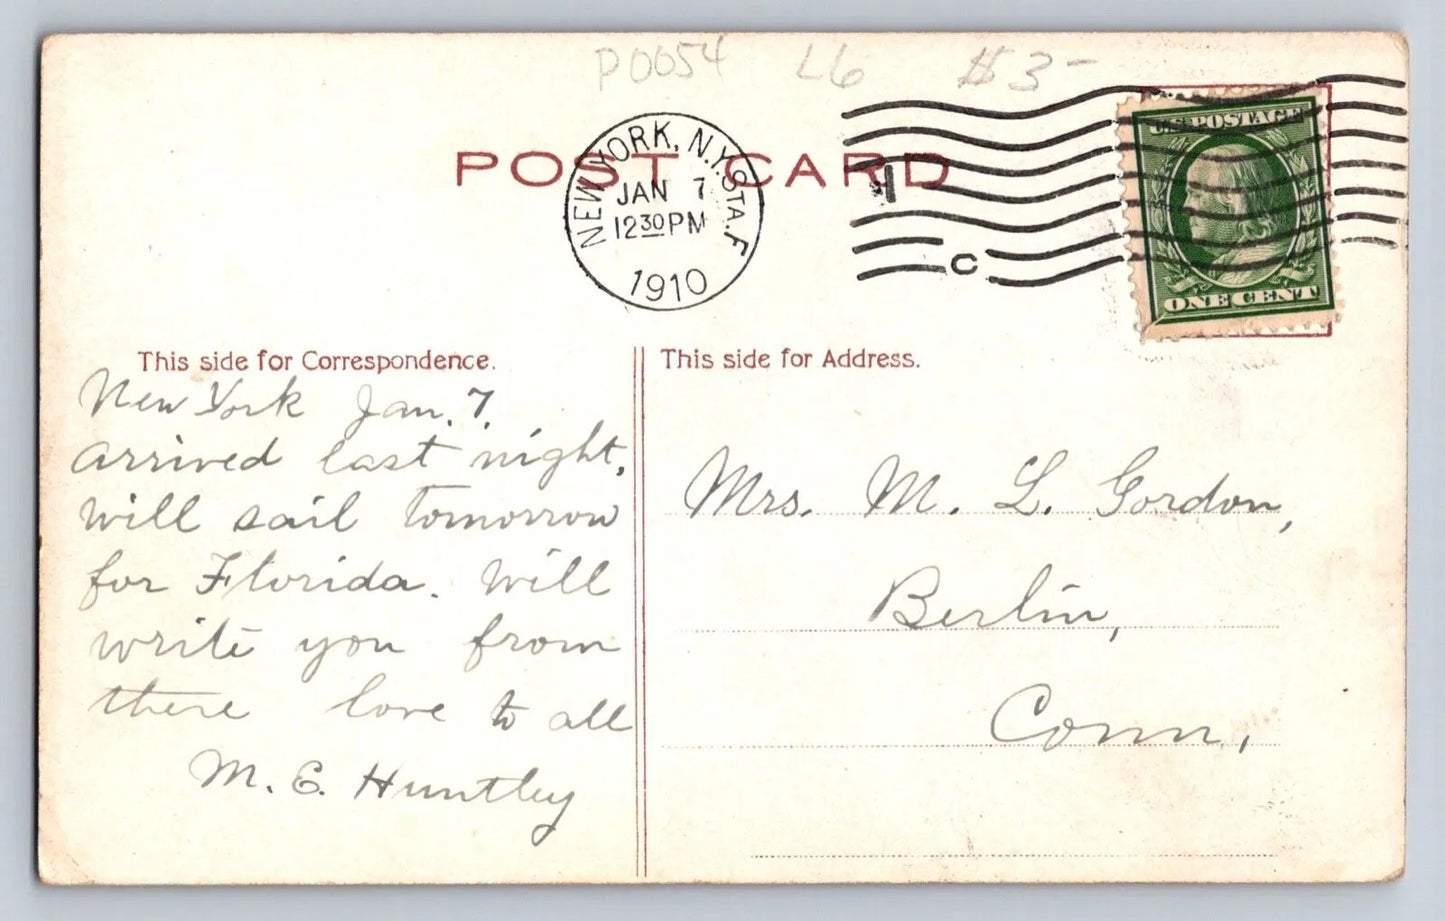 P0054 L6 $3-
POST CARD
NEW YORK, N.Y. STA. F
JAN 7
12 30 PM
1910
1
C
U.S. POSTAGE
ONE CENT
This side for Correspondence.
New York Jan. 7.
arrived last night.
will sail tomorrow
for Florida. Will
write you from
there love to all
M. E. Huntley
This side for Address.
Mrs. M. L. Gordon,
Berlin,
Conn,